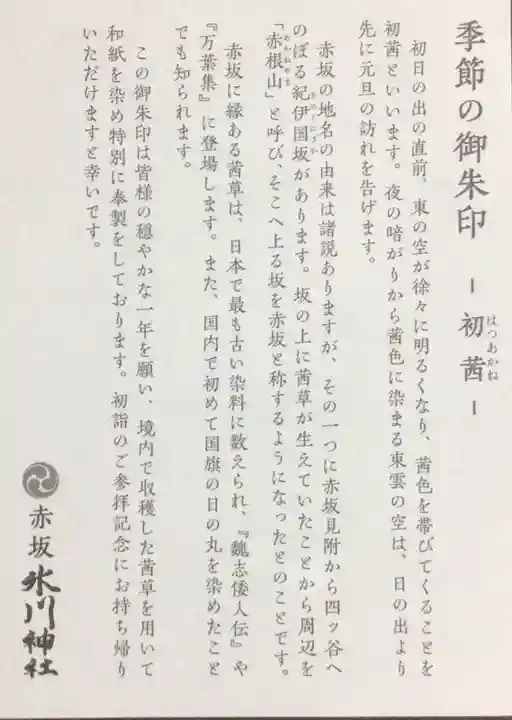 季節の御朱印 ー 初茜 ー
はつあかね
初日の出の直前、東の空が徐々に明るくなり、茜色を帯びてくることを
初茜といいます。夜の暗がりから茜色に染まる東雲の空は、日の出より
先に元旦の訪れを告げます。
赤坂の地名の由来は諸説ありますが、その一つに赤坂見附から四ッ谷へ
のぼる紀伊国坂があります。坂の上に茜草が生えていたことから周辺を
「赤根山」と呼び、そこへ上る坂を赤坂と称するようになったとのことです。
赤坂に縁ある茜草は、日本で最も古い染料に数えられ、『魏志倭人伝』や
『万葉集』に登場します。また、国内で初めて国旗の日の丸を染めたこと
でも知られます。
この御朱印は皆様の穏やかな一年を願い、境内で収穫した茜草を用いて
和紙を染め特別に奉製をしております。初詣のご参拝記念にお持ち帰り
いただけますと幸いです。
赤坂氷川神社